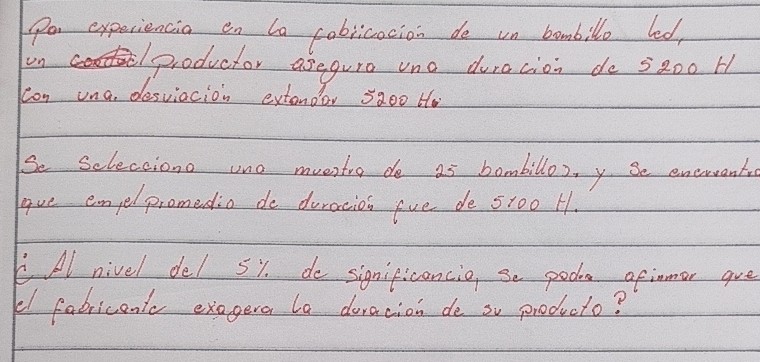 Por experiencia en la fabricación de un bombillo led,
un productor asegura una duración de 5200 H
con una. desviación extandar 5200 H.
Se Selecciona una muestra de 25 bombillos, y se encuentra
que en el promedio de duración fue de 5100 H.
¿ Al nivel del 5% de significancia, se podra afirmar que
el fabricante exagera la duración de su producto?